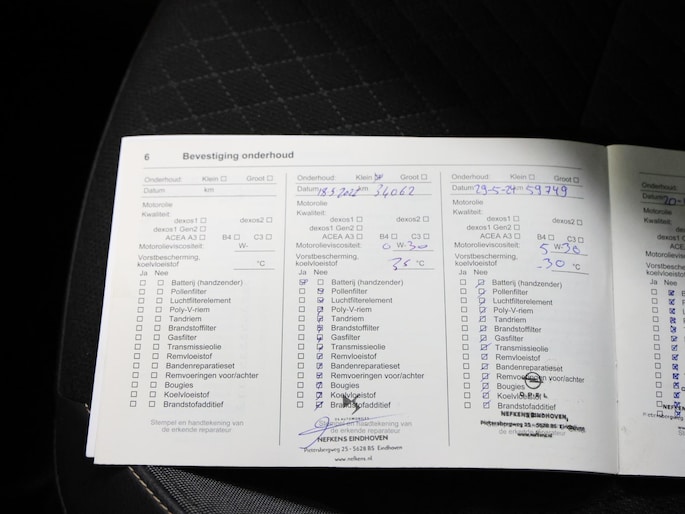 6 Bevestiging onderhoud
Onderhoud: Klein Groot
Datum km
Motorolie
Kwaliteit:
dexos1 dexos2
dexos1 Gen2
ACEA A3 B4 C3
Motorolieviscositeit: W-
Vorstbescherming,
koelvloeistof °C
Ja Nee
Batterij (handzender)
Pollenfilter
Luchtfilterelement
Poly-V-riem
Tandriem
Brandstoffilter
Gasfilter
Transmissieolie
Remvloeistof
Bandenreparatieset
Remvoeringen voor/achter
Bougies
Koelvloeistof
Brandstofadditief
Stempel en handtekening van
de erkende reparateur
Onderhoud: Klein Groot
Datum km 34062
Motorolie
Kwaliteit:
dexos1 dexos2
dexos1 Gen2
ACEA A3 B4 C3
Motorolieviscositeit: 0 W-30
Vorstbescherming,
koelvloeistof 35 °C
Ja Nee
Batterij (handzender)
Pollenfilter
Luchtfilterelement
Poly-V-riem
Tandriem
Brandstoffilter
Gasfilter
Transmissieolie
Remvloeistof
Bandenreparatieset
Remvoeringen voor/achter
Bougies
Koelvloeistof
Brandstofadditief
Stempel en handtekening van
NEFKENS EINDHOVEN
Pietersbergweg 25 - 5628 BS Eindhoven
www.nefkens.nl
Onderhoud: Klein Groot
Datum 29-5-24 km 59749
Motorolie
Kwaliteit:
dexos1 dexos2
dexos1 Gen2
ACEA A3 B4 C3
Motorolieviscositeit: 5 W-30
Vorstbescherming,
koelvloeistof -30 °C
Ja Nee
Batterij (handzender)
Pollenfilter
Luchtfilterelement
Poly-V-riem
Tandriem
Brandstoffilter
Gasfilter
Transmissieolie
Remvloeistof
Bandenreparatieset
Remvoeringen voor/achter
Bougies
Koelvloeistof
Brandstofadditief
OPEL
NEFKENS EINDHOVEN
Pietersbergweg 25 - 5628 BS Eindhoven
www.nefkens.nl
Onderhoud:
Datum
Motorolie
Kwaliteit:
Ja Nee